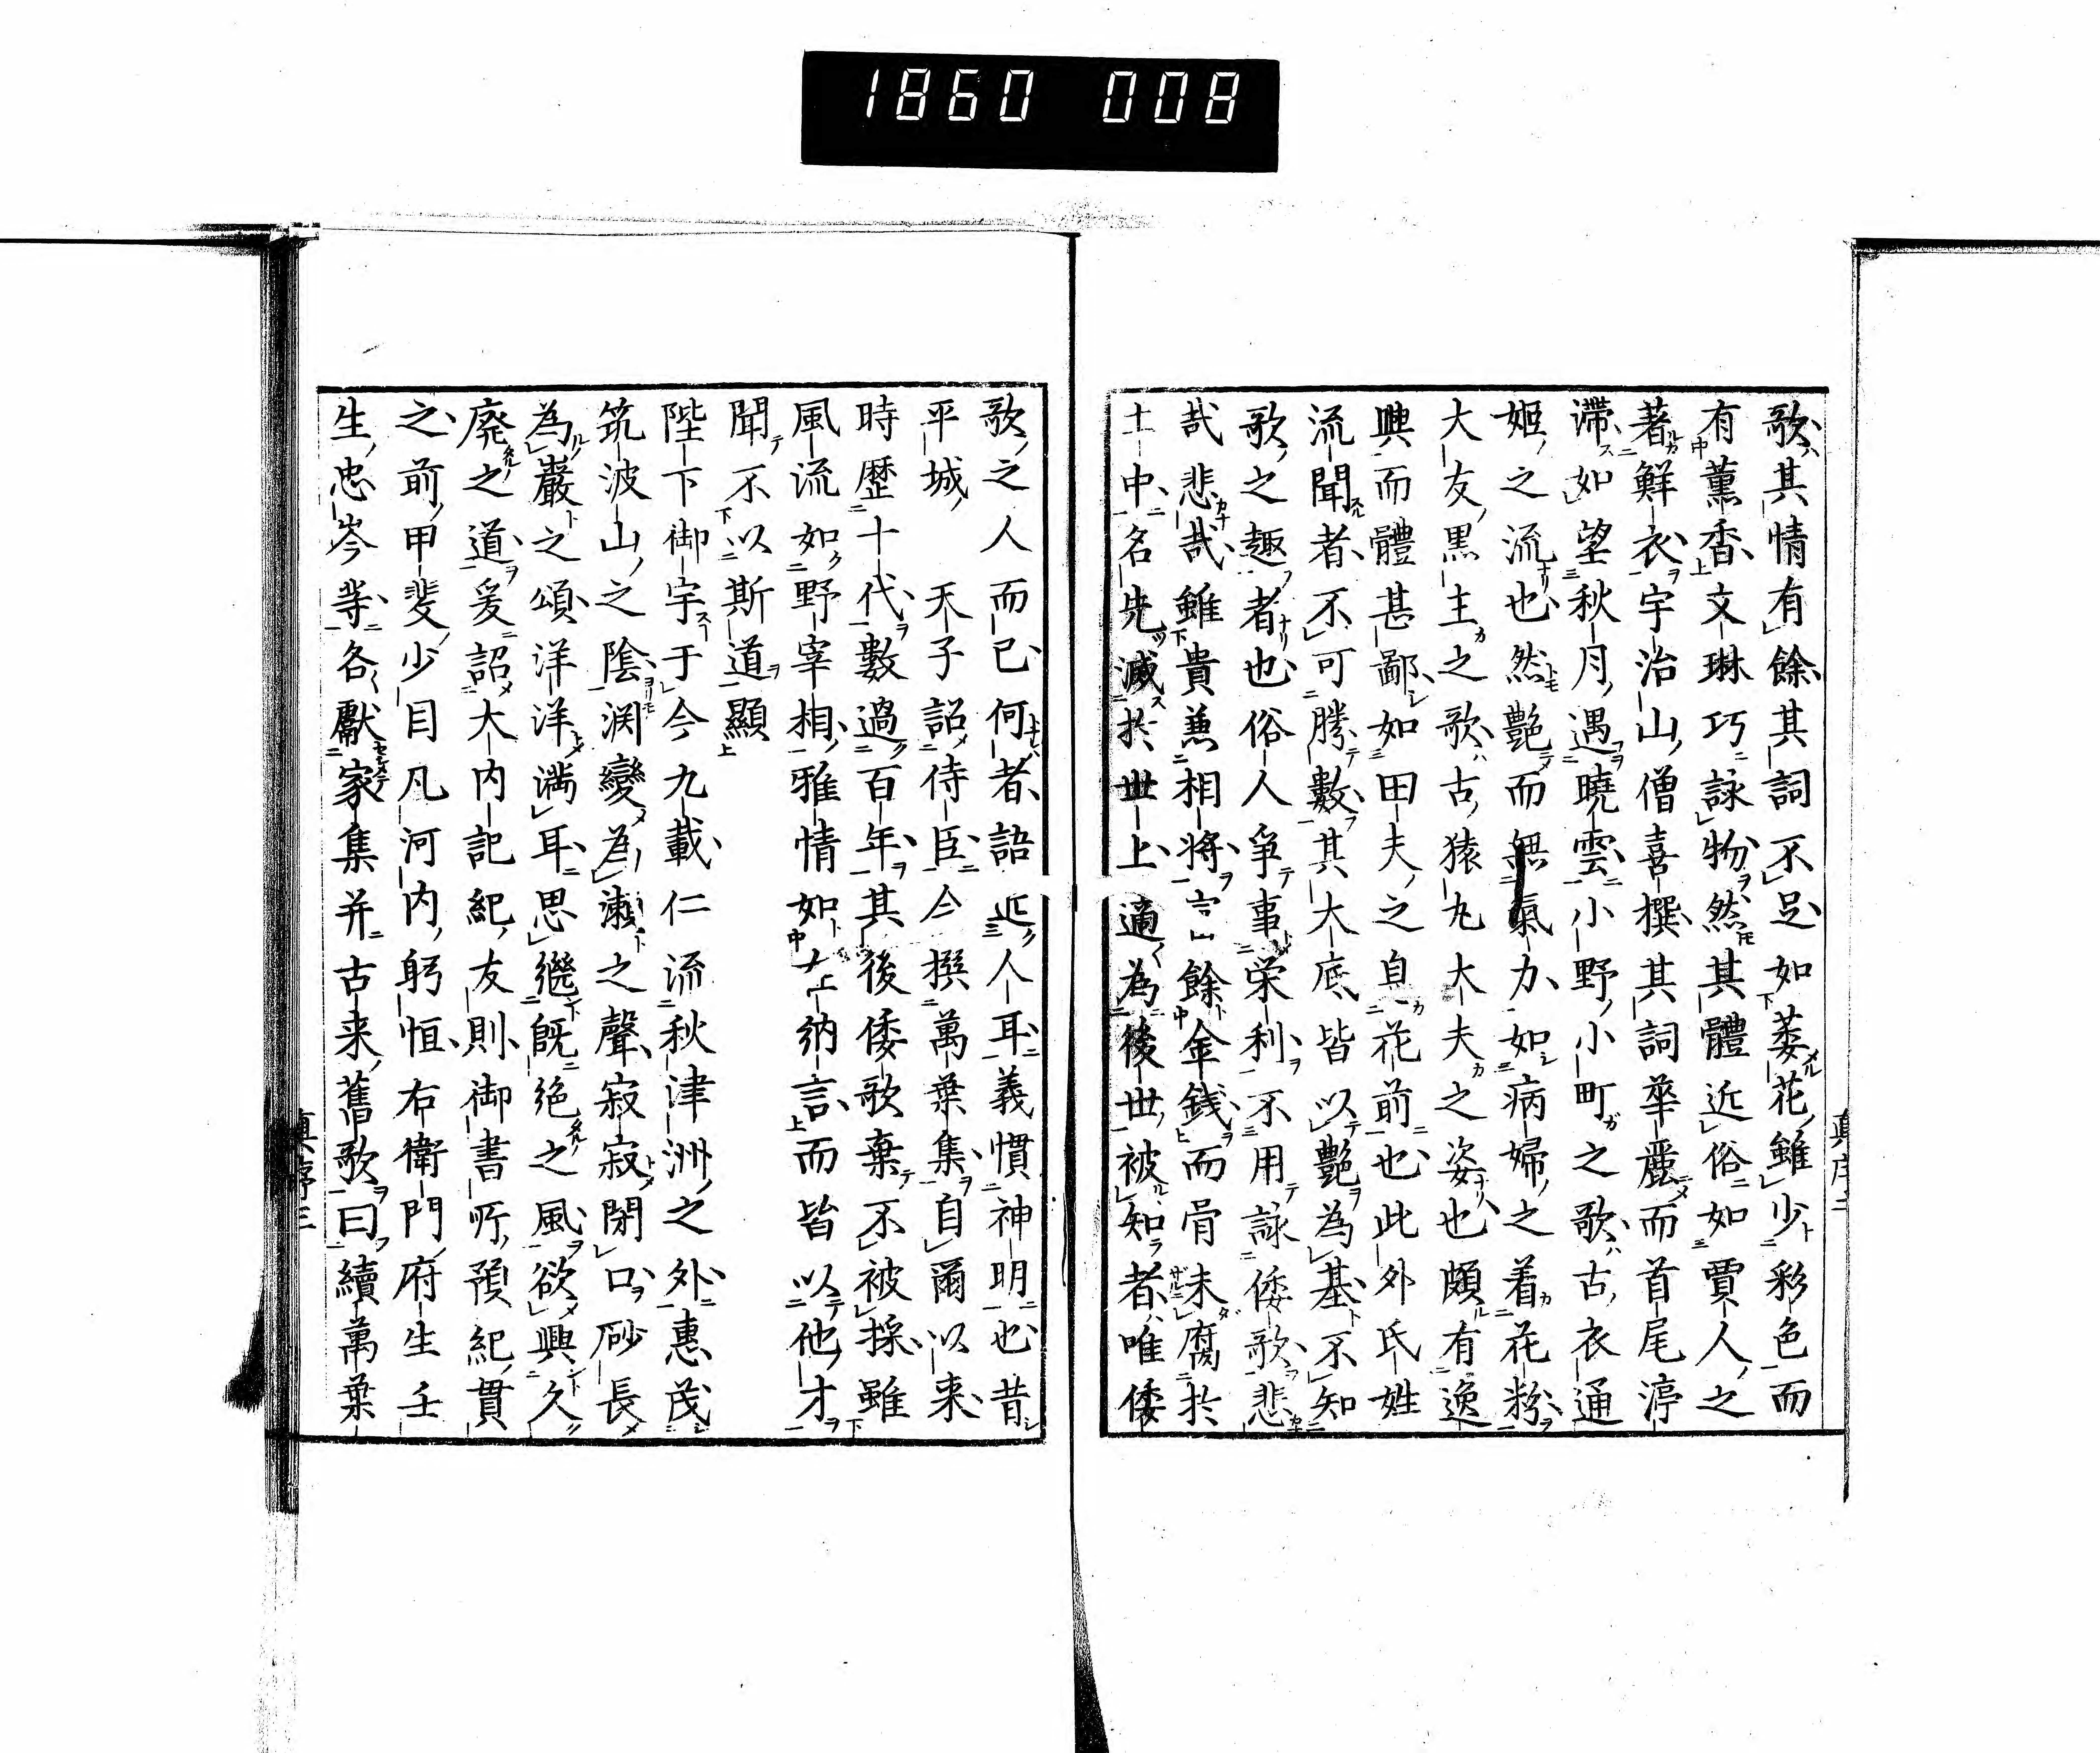 1860 008
歌其情有餘其詞不足如萎花雖少彩色而
有薫香文琳巧詠物然其體近俗如賈人之
著鮮衣宇治山僧喜撰其詞華麗而首尾渟
滯如望秋月遇曉雲小野小町之歌古衣通
姫之流也然艶而無氣力如病婦之着花粉
大友黒主之歌古猿丸大夫之姿也頗有逸
興而體甚鄙如田夫之息花前也此外氏姓
流聞者不可勝數其大底皆以艶為基不知
歌之趣者也俗人爭事栄利不用詠倭歌悲
哉悲哉雖貴兼相將餘金銭而骨未腐於
土中名先滅於世上適為後世被知者唯倭
真序二
歌之人而已何者語近人耳義慣神明也昔
平城天子詔侍臣令撰萬葉集自爾以来
時歴十代數過百年其後倭歌棄不被採雖
風流如野宰相雅情如在納言而皆以他才
聞不以斯道顯
陛下御宇于今九載仁流秋津洲之外惠茂
筑波山之陰渕變為瀬之聲寂寂閉口砂長
為巖之頌洋洋満耳思繼既絶之風欲興久
廃之道爰詔大内記紀友則御書所預紀貫
之前甲斐少目凡河内躬恒右衛門府生壬
生忠岑等各獻家集并古来舊歌曰續萬葉
真序三